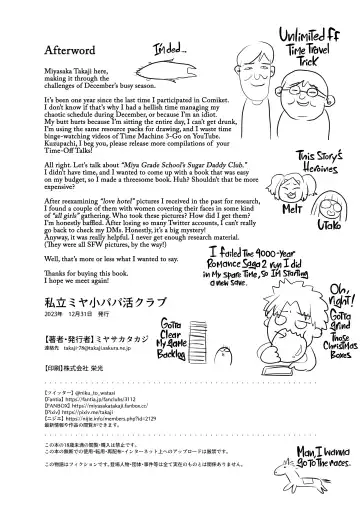 Afterword
Miyasaka Takaji here,
making it through the
challenges of December's busy season.
It's been one year since the last time I participated in Comiket.
I don't know if that's why I had a hellish time managing my
chaotic schedule during December, or because I'm an idiot.
My butt hurts because I'm sitting the entire day, I can't get drunk,
I'm using the same resource packs for drawing, and I waste time
binge-watching videos of Time Machine 3-Go on YouTube.
Kurupachi, I beg you, please release more compilations of your
Time-Off Talks!
All right. Let's talk about "Miya Grade School's Sugar Daddy Club."
I didn't have time, and I wanted to come up with a book that was easy
on my budget, so I made a threesome book. Huh? Shouldn't that be more
expensive?
After reexamining "love hotel" pictures I received in the past for research,
I found a couple of them with women covering their faces in some kind
of "all girls" gathering. Who took those pictures? How did I get them?
I'm honestly baffled. After losing so many Twitter accounts, I can't really
go back to check my DMs. Honestly, it's a big mystery!
Anyway, it was really helpful. I never get enough research material.
(They were all SFW pictures, by the way!)
Well, that's more or less what I wanted to say.
Thanks for buying this book.
I hope we meet again!
Unlimited
Time Travel
Trick
This Story's
Heroines
Melt
Utako
I failed the 4000-Year
Romance Saga 2 run I did
in My Spare Time, so I'm Starting
a new save.
Oh,
right!
Gotta
grind
Those
Christmas
Boxes
Gotta
Clear
My game
Backlog
Man, I wanna
go To the races.
私立ミヤ小パパ活クラブ
2023年 12月31日 発行
【著者・発行者】ミヤサカタカジ
連絡先 takaji-78@takaji.sakura.ne.jp
【印刷】株式会社 栄光
【ツイッター】@niku_to_wataai
【Fantia】https://fantia.jp/fanclubs/3112
【FANBOX】https://miyasakatakaji.fanbox.cc/
【Pixiv】https://pixiv.me/takaji
【ニジエ】https://nijie.info/members.php?id=2129
最新情報や作品の閲覧ができます。
この本の18歳未満の閲覧・購入は禁止です。
この本の無断での使用・転用・再配布・インターネット上へのアップロードは厳禁です。
この物語はフィクションです。登場人物・団体・事件等は全て実在のものとは関係ありません。